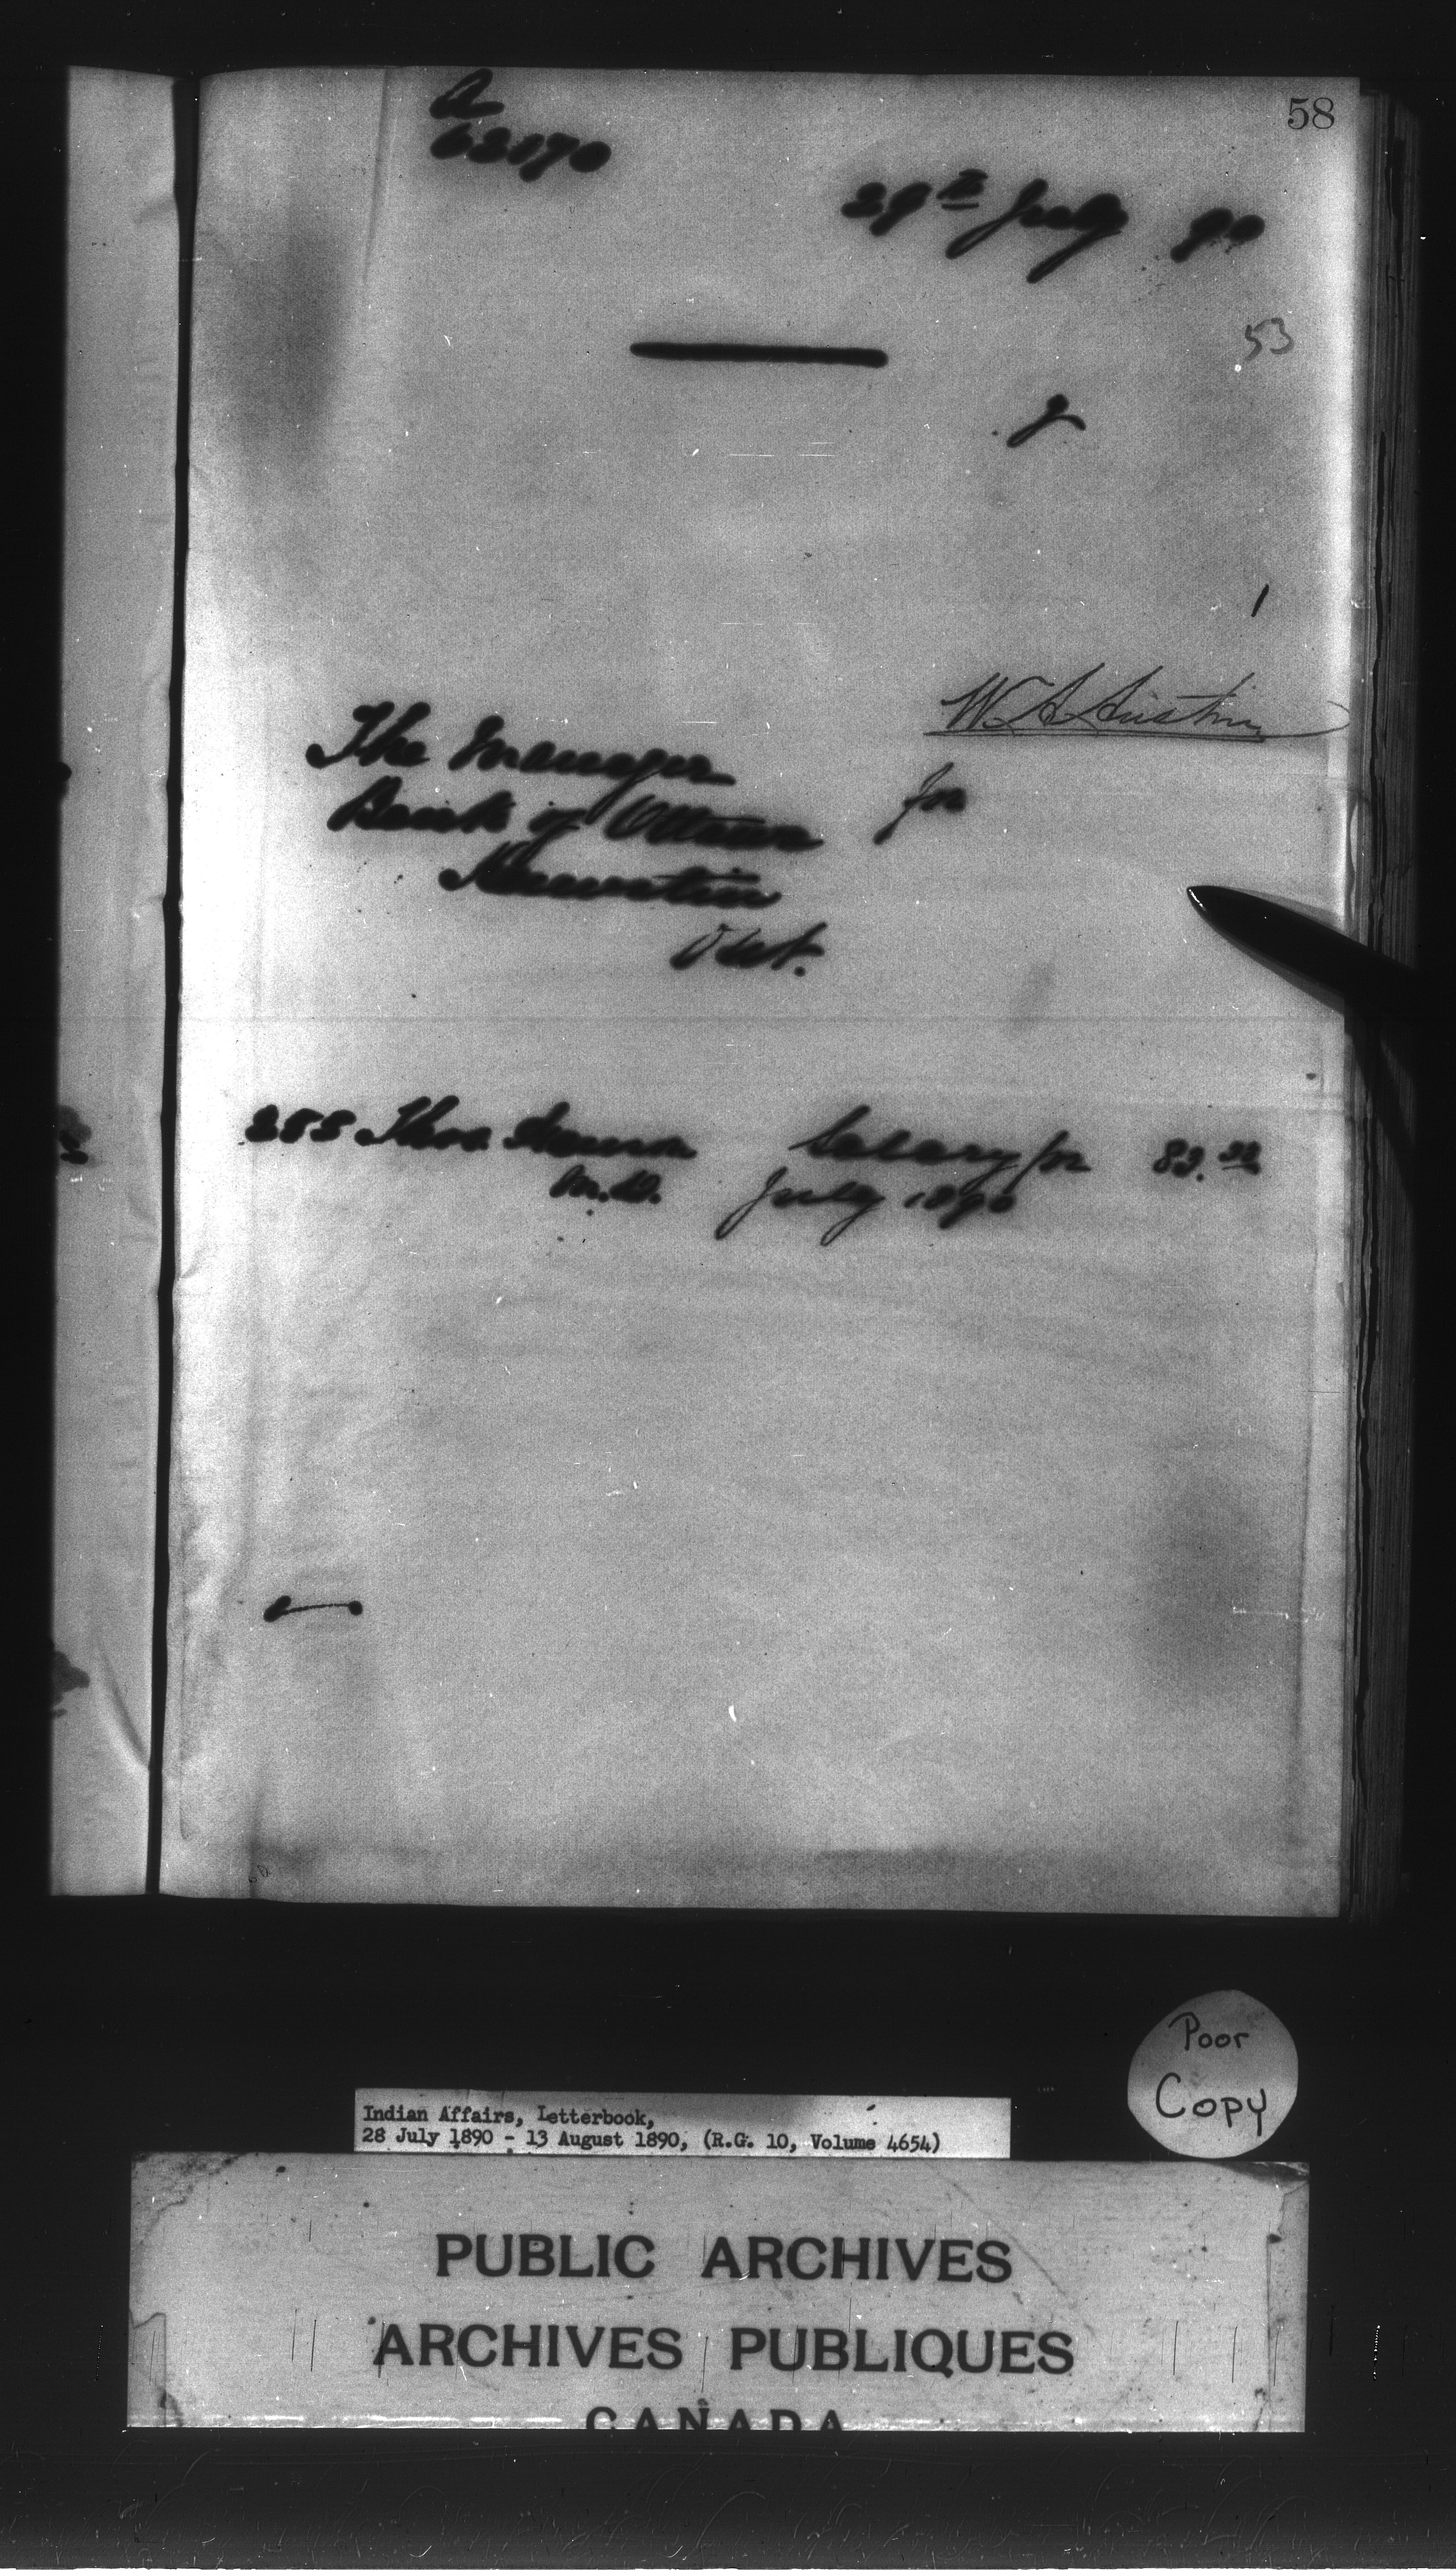 58
A
62170
29th July 90
53
J
W A Austin
The Manager
for
Bank of Ottawa
Keewatin
Ont.
255 Thos Hanson Salary for 83.33
M.D. July 1890
Poor
Copy
Indian Affairs, Letterbook,
28 July 1890 - 13 August 1890, (R.G. 10, Volume 4654)
PUBLIC ARCHIVES
ARCHIVES PUBLIQUES
CANADA